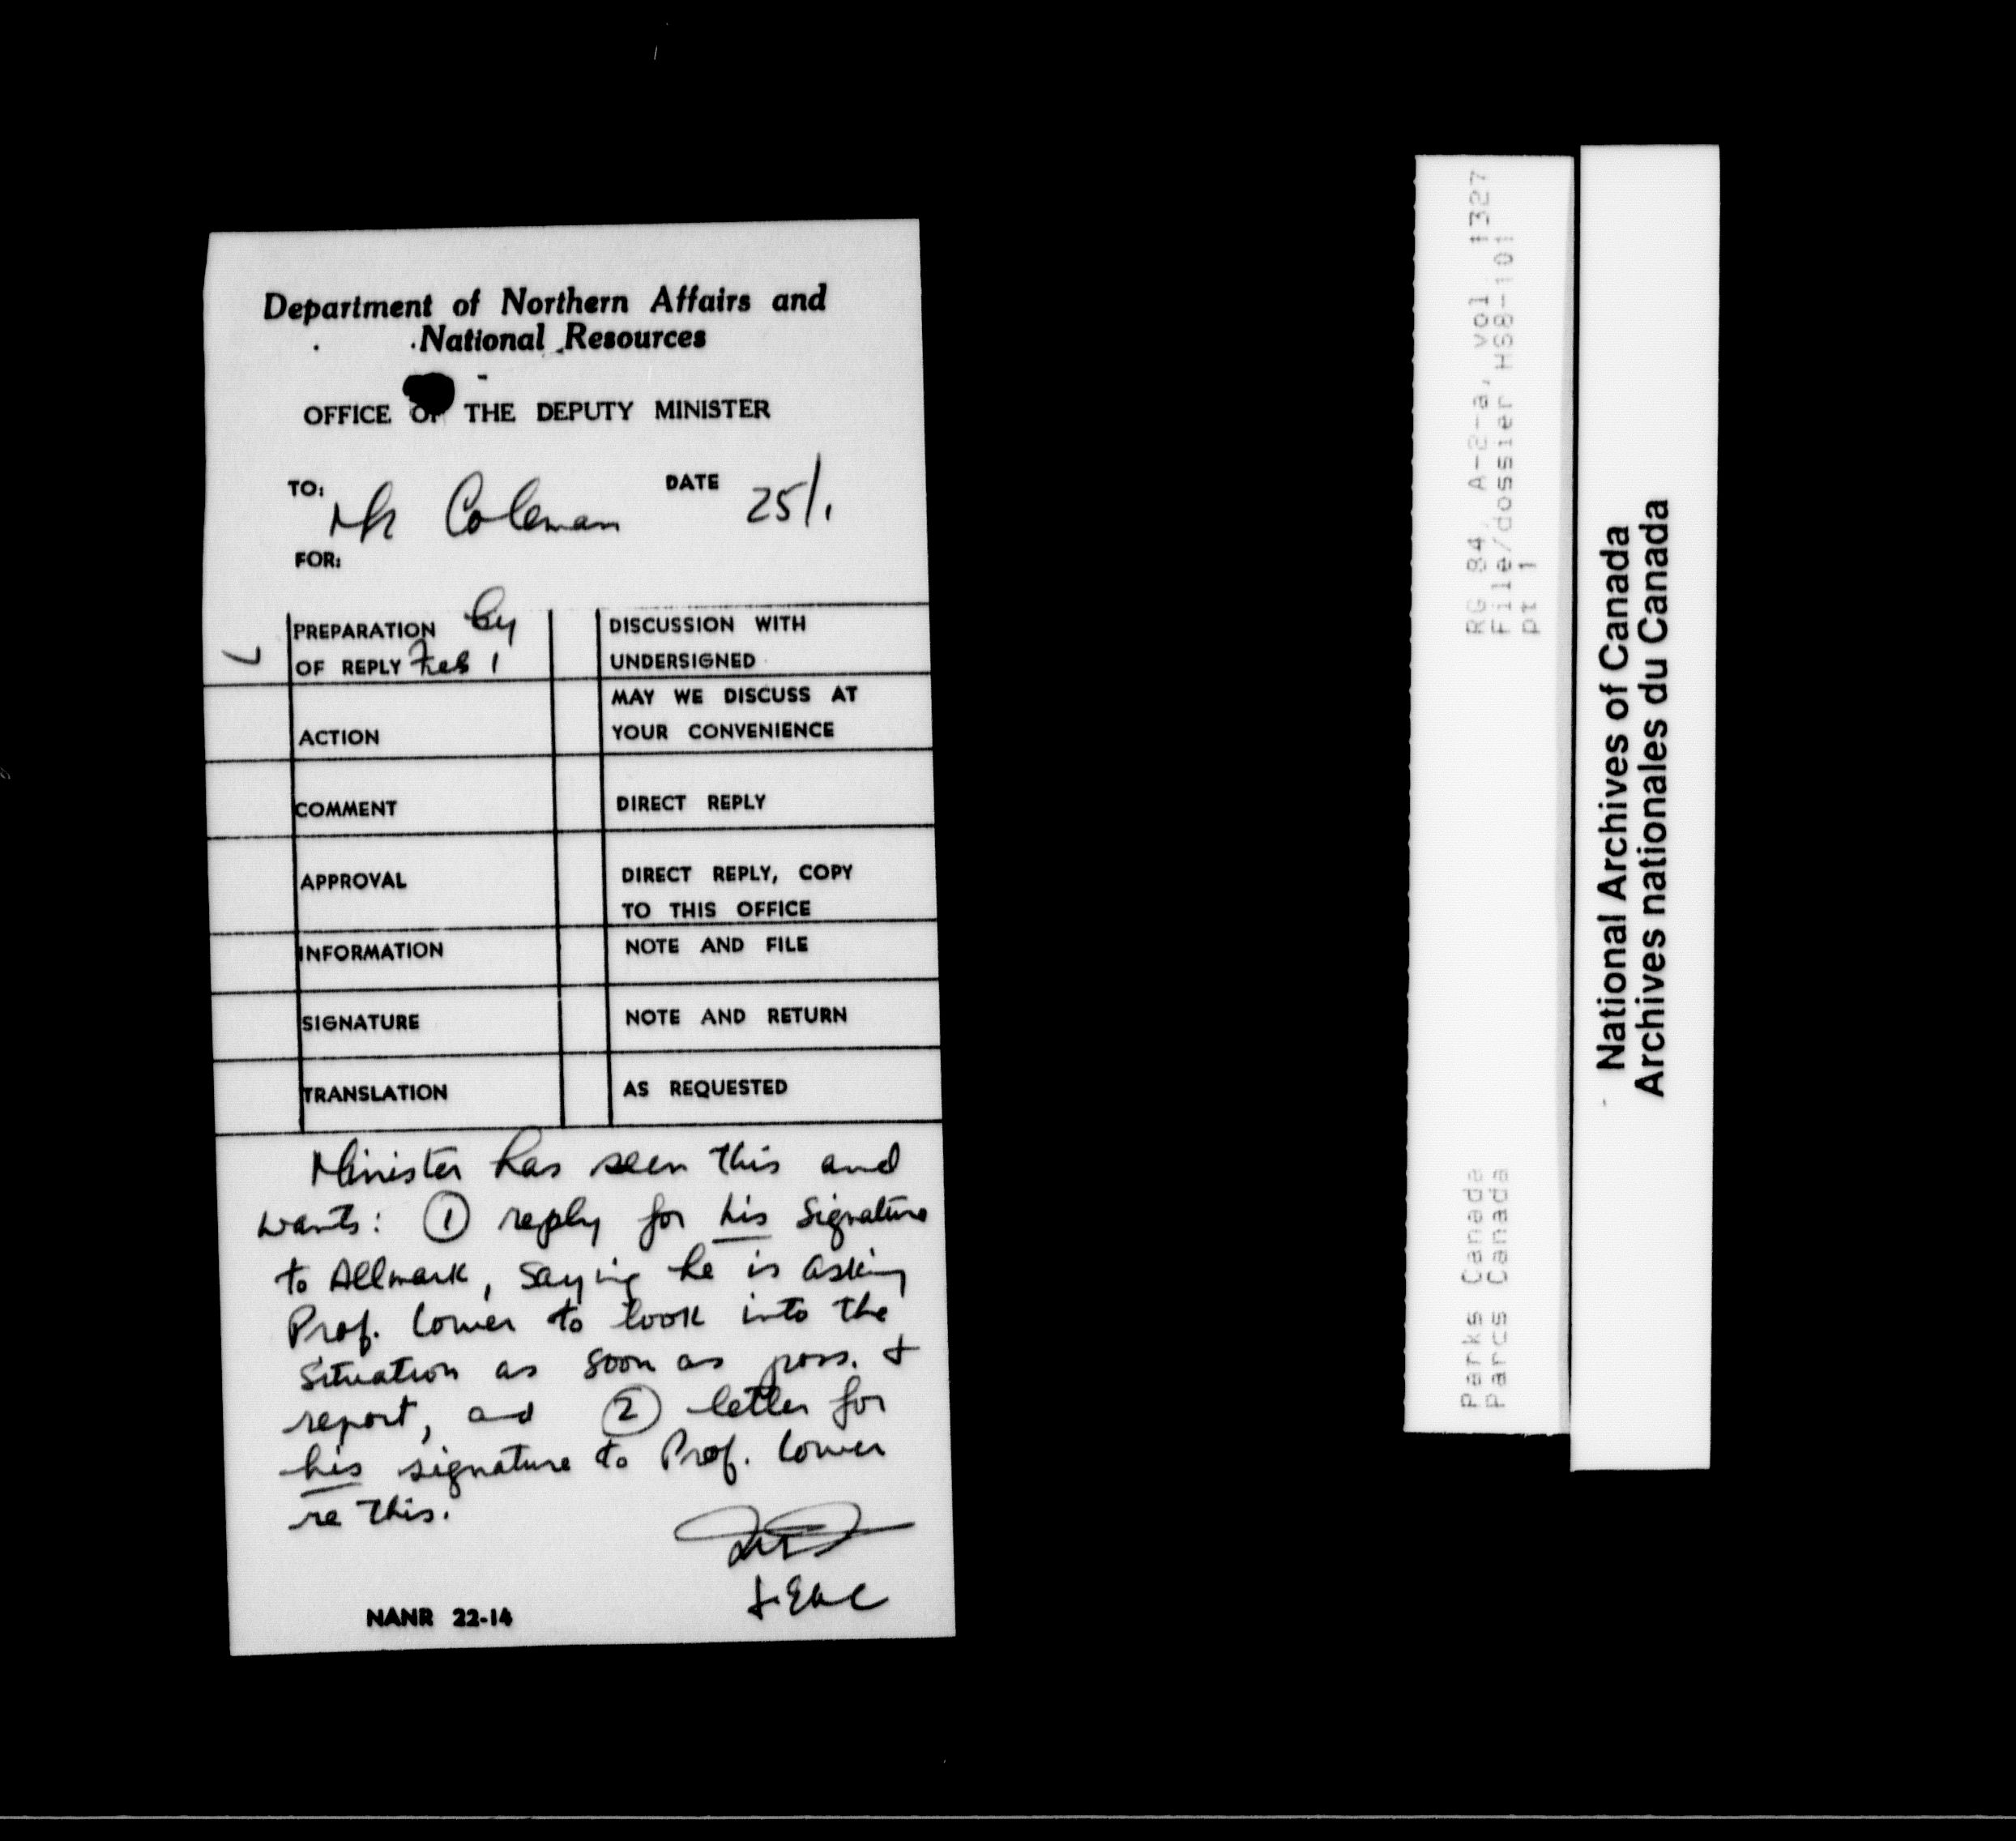 Department of Northern Affairs and
National Resources
OFFICE OF THE DEPUTY MINISTER
TO: Mr Coleman DATE 25/1
FOR:
PREPARATION by
OF REPLY Feb 1
DISCUSSION WITH
UNDERSIGNED
ACTION
MAY WE DISCUSS AT
YOUR CONVENIENCE
COMMENT
DIRECT REPLY
APPROVAL
DIRECT REPLY, COPY
TO THIS OFFICE
INFORMATION
NOTE AND FILE
SIGNATURE
NOTE AND RETURN
TRANSLATION
AS REQUESTED
Minister has seen this and
wants: ① reply for his signature
to Allmark, saying he is asking
Prof. Lower to look into the
situation as soon as poss. +
report, and ② letter for
his signature to Prof. Lower
re this.
NANR 22-14
RG 84, A-2-a, vol 1327
File/dossier HS8-101
pt 1
Parks Canada
Parcs Canada
National Archives of Canada
Archives nationales du Canada